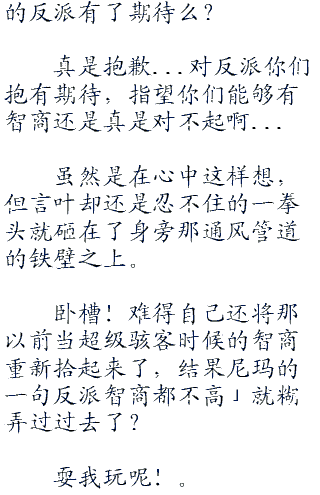 的反派有了期待么？
真是抱歉...对反派你们
抱有期待，指望你们能够有
智商还是真是对不起啊...
虽然是在心中这样想，
但言叶却还是忍不住的一拳
头就砸在了身旁那通风管道
的铁壁之上。
卧槽！难得自己还将那
以前当超级骇客时候的智商
重新拾起来了，结果尼玛的
一句反派智商都不高」就糊
弄过过去了？
耍我玩呢！。